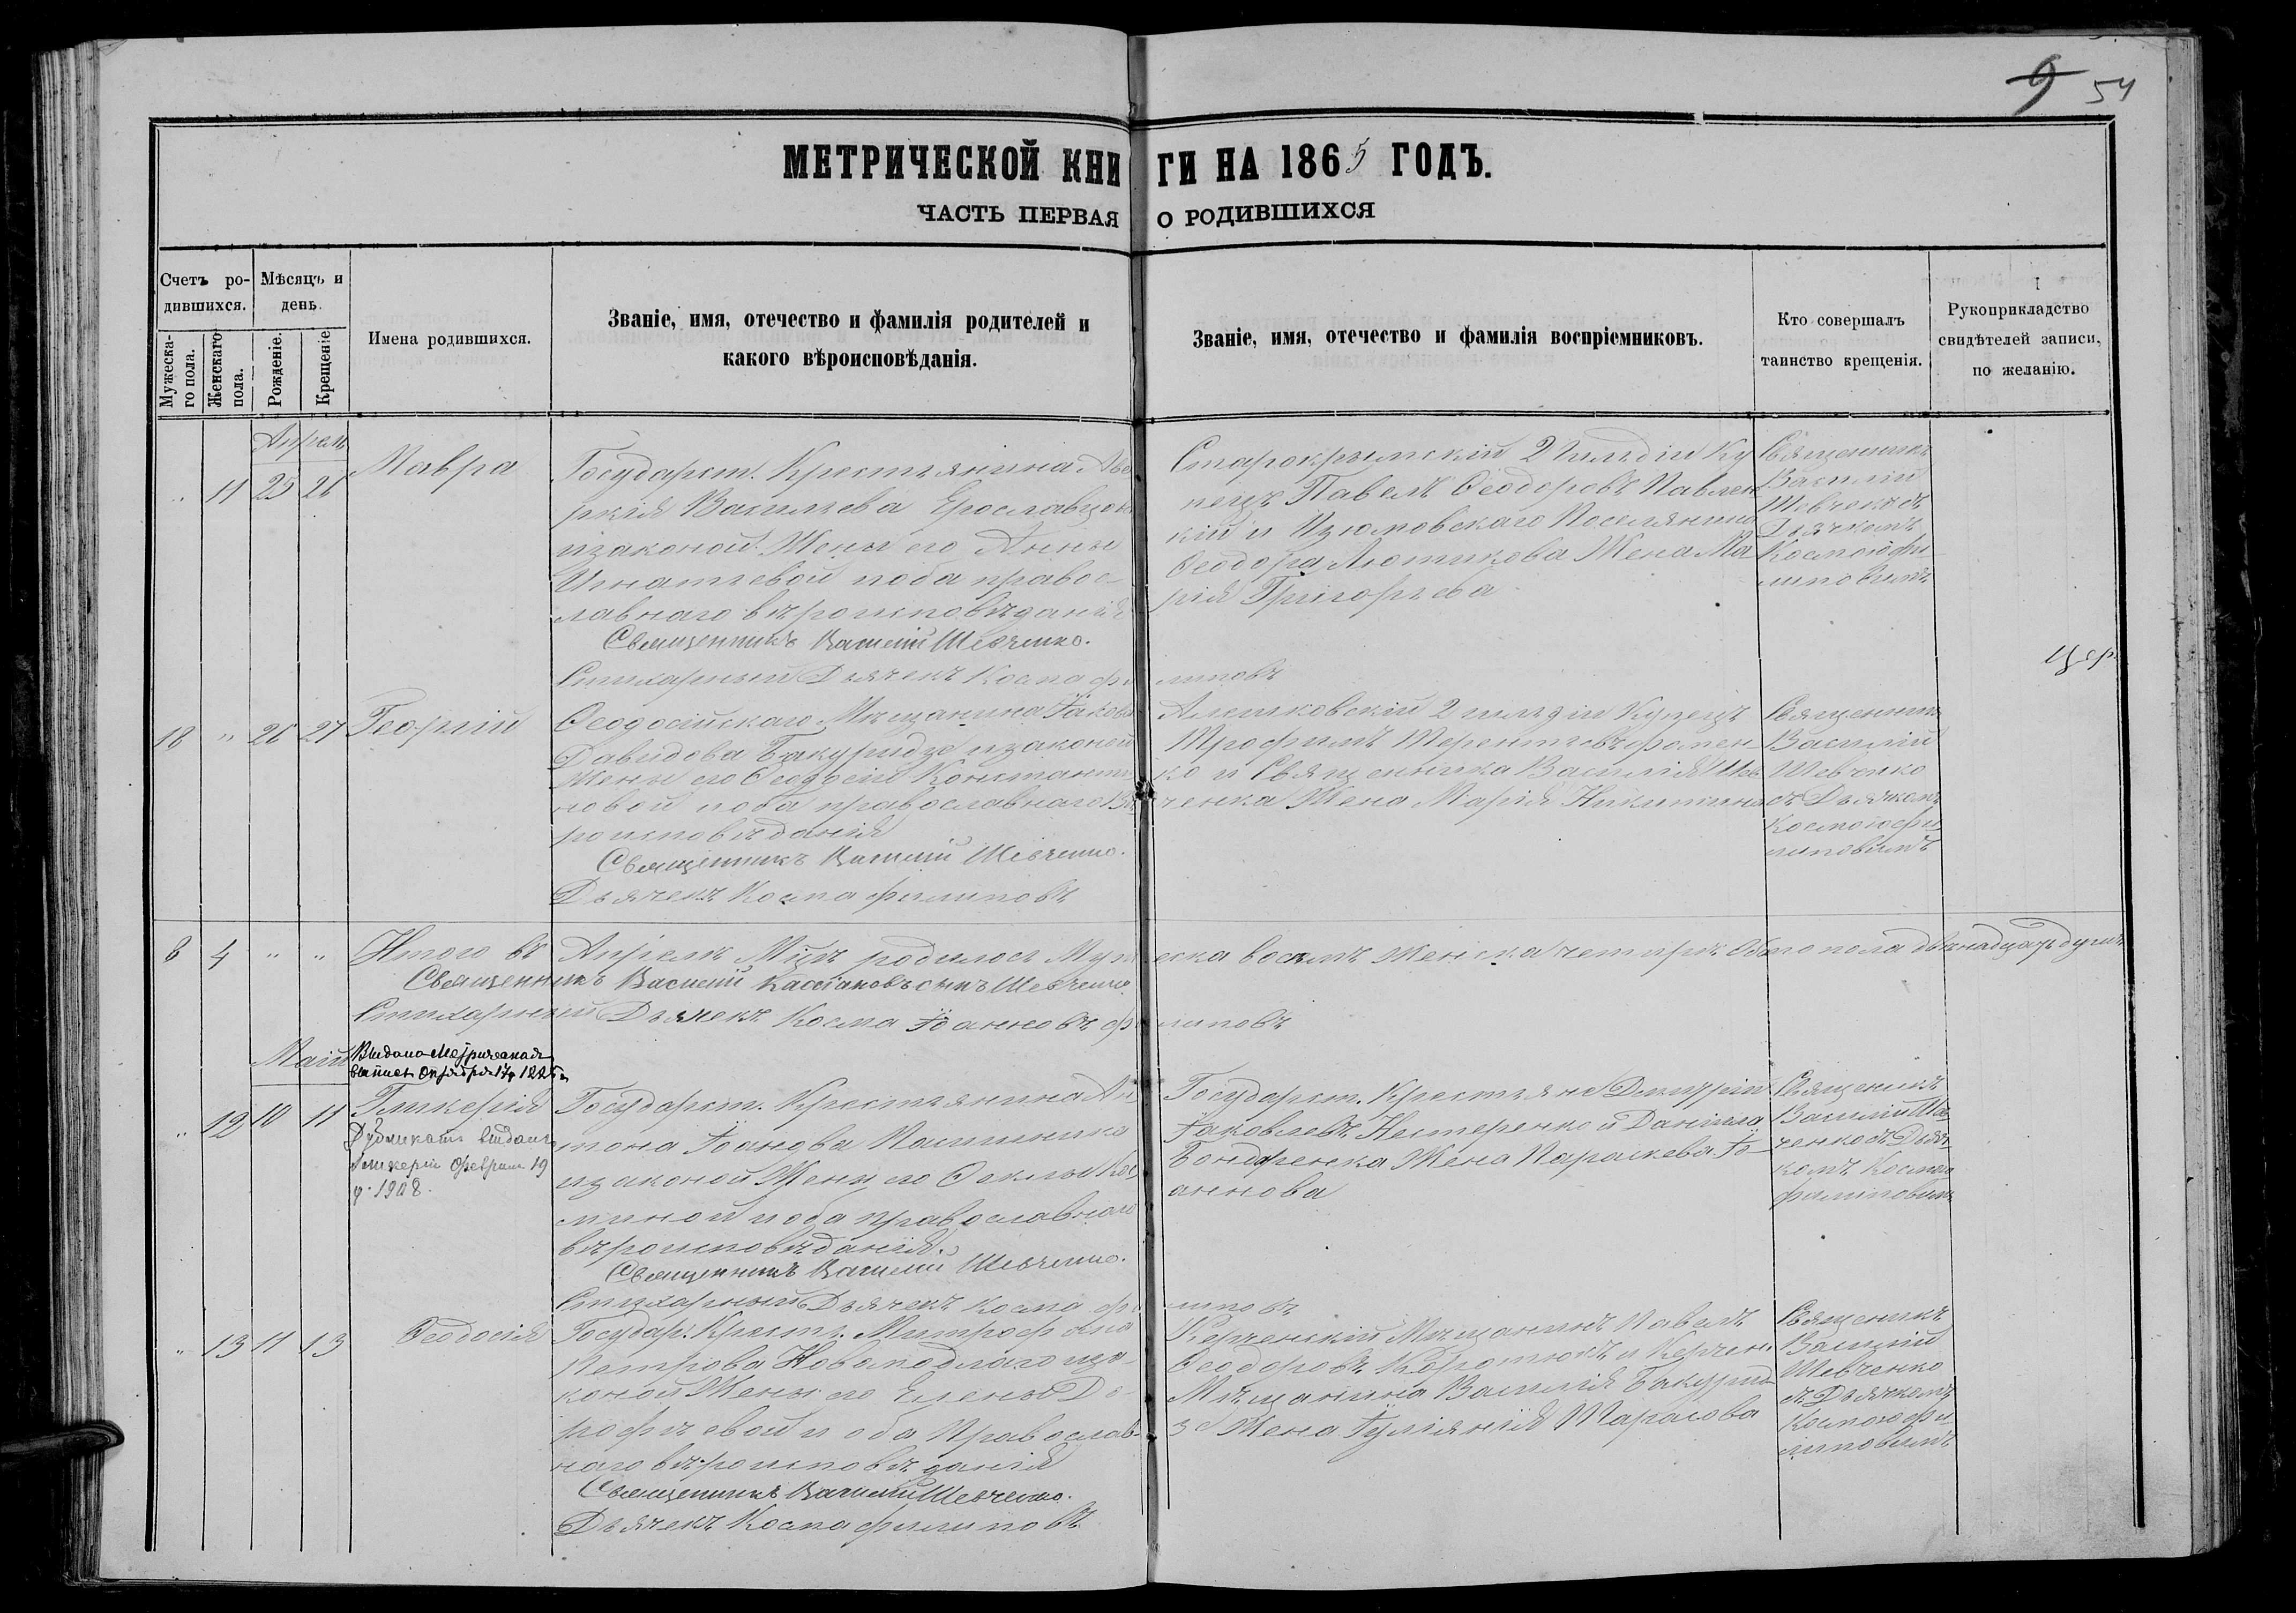 9 54
МЕТРИЧЕСКОЙ КНИГИ НА 1865 ГОДЪ.
ЧАСТЬ ПЕРВАЯ О РОДИВШИХСЯ
Счетъ ро-
дившихся.
Мужеска-
го пола.
Женскаго
пола.
Мѣсяцъ и
день.
Рожденіе.
Крещеніе
Имена родившихся.
Званіе, имя, отечество и фамилія родителей и
какого вѣроисповѣданія.
Званіе, имя, отечество и фамилія воспріемниковъ.
Кто совершалъ
таинство крещенія.
Рукоприкладство
свидѣтелей записи,
по желанію.
Апрель
11 25 26
Мавра
Государст. Крестьянина
Васильева
изаконой Жены его Анны
Игнатьевой оба правос-
лавнаго вѣроисповѣданія
Священникъ Василій Шевченко.
Стихарный Дьячекъ Косма Филиповъ
Старокрымскій 2 Гильдіи Ку
пецъ Павелъ Феодоровъ Павлен
кій и Изюмовскаго Поселянина
Феодора Лютикова Жена Ма
рія Григорьева
Священникъ
Василій
Шевченко съ
Дьячкомъ
Космою Фи
липовымъ
18 " 26 27
Георгій
Феодосійскаго Мѣщанина Іакова
Давидова Бакуридзе изаконой
Жены его Феодосіи Константи
новой оба православнаго Вѣ
роисповѣданія
Священникъ Василій Шевченко.
Дьячекъ Косма Филиповъ
Алешковскій 2 гильдіи Купецъ
Трофимъ Терентьевъ Фомен
ко и Священника Василія Шев
ченка Жена Марія Никитина
Священникъ
Василій
Шевченко
съ Дьячкомъ
Космою Фи
липовымъ
8 4 " "
Итого въ Апрелѣ Мцѣ родилось Мужеска восемъ Женска четыре Обоего пола двѣнадцать душъ
Священникъ Василій Кассіановъ сынъ Шевченко
Стихарный Дьячекъ Косма Іоанновъ Филиповъ
Май
Выдана Метрическая
" 12 10 11
Гликерія
Дубликатъ выданъ
Гликеріи Февраля 19
1908.
Государст. Крестьянина Ан
тона Іоанова Пасишника
изаконой Жены его Феклы Кос
миной оба православнаго
вѣроисповѣданія.
Священникъ Василій Шевченко.
Стихарный Дьячекъ Косма Филиповъ
Государст. Крестьяне Дмитрій
Іаковлевъ Нестеренко и Даніила
Бондаренка Жена Параскева Іо
аннова
Священикъ
Василій Шев
ченко съ Дьяч
комъ Космою
Филиповымъ
" 13 11 13
Феодосія
Государ. Крест. Митрофана
Петрова иза
коной Жены его Елены До
рофѣевой и оба Православ
наго вѣроисповѣданія
Священникъ Василій Шевченко.
Дьячекъ Косма Филиповъ
Керченскій Мѣщанинъ Павелъ
Феодоровъ Коротюкъ и Керчен.
Мѣщанина Василія Бакурид
зе Жена Іуліянія Тарасова
Священикъ
Василій
Шевченко
съ Дьячкомъ
Космою Фи
липовымъ